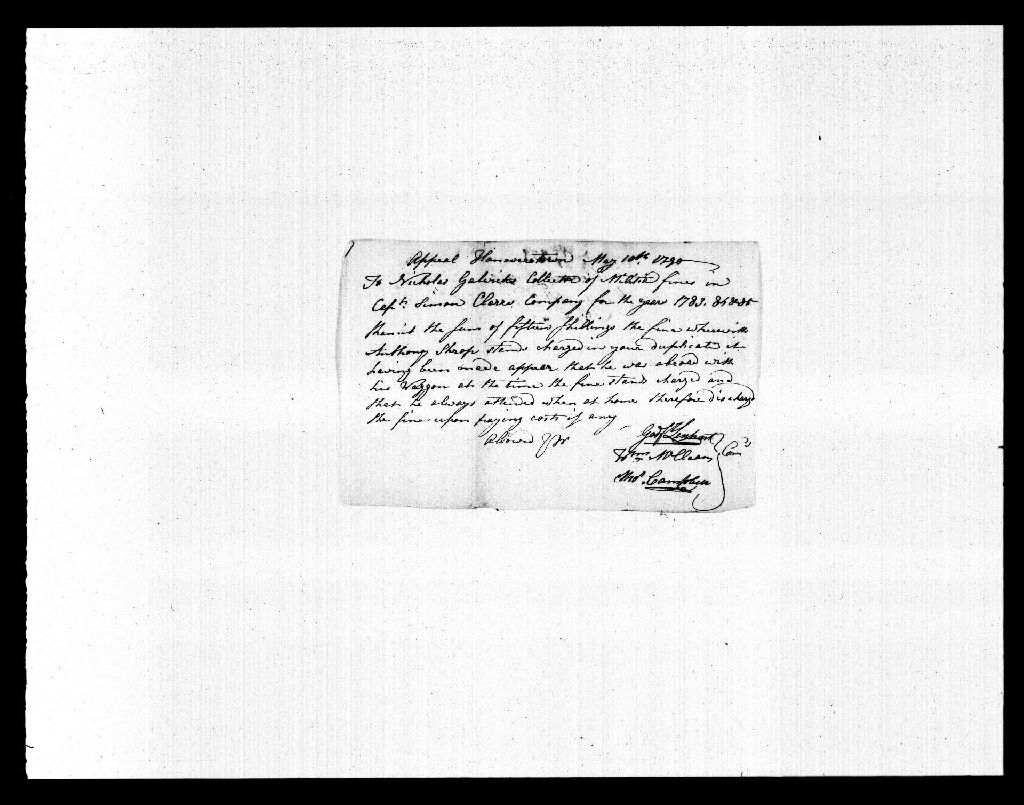 Appeal Hanovertown May 10th 1790
To Nicholas Gelwicks Collector of Militia fines in
Capt. Simon Clares Company for the year 1783. 84 & 85
Remit the sum of fifteen Shillings the fine wherewith
Anthony Shrop stands charged in your duplicate it
having been made appear that he was abroad with
his Waggon at the time the fine stands charged and
that he always attended when at home therefore discharge
the fine upon paying costs if any
allowed
Godf. Lenhart
Wm. McClean Com.s
Thos. Campbell